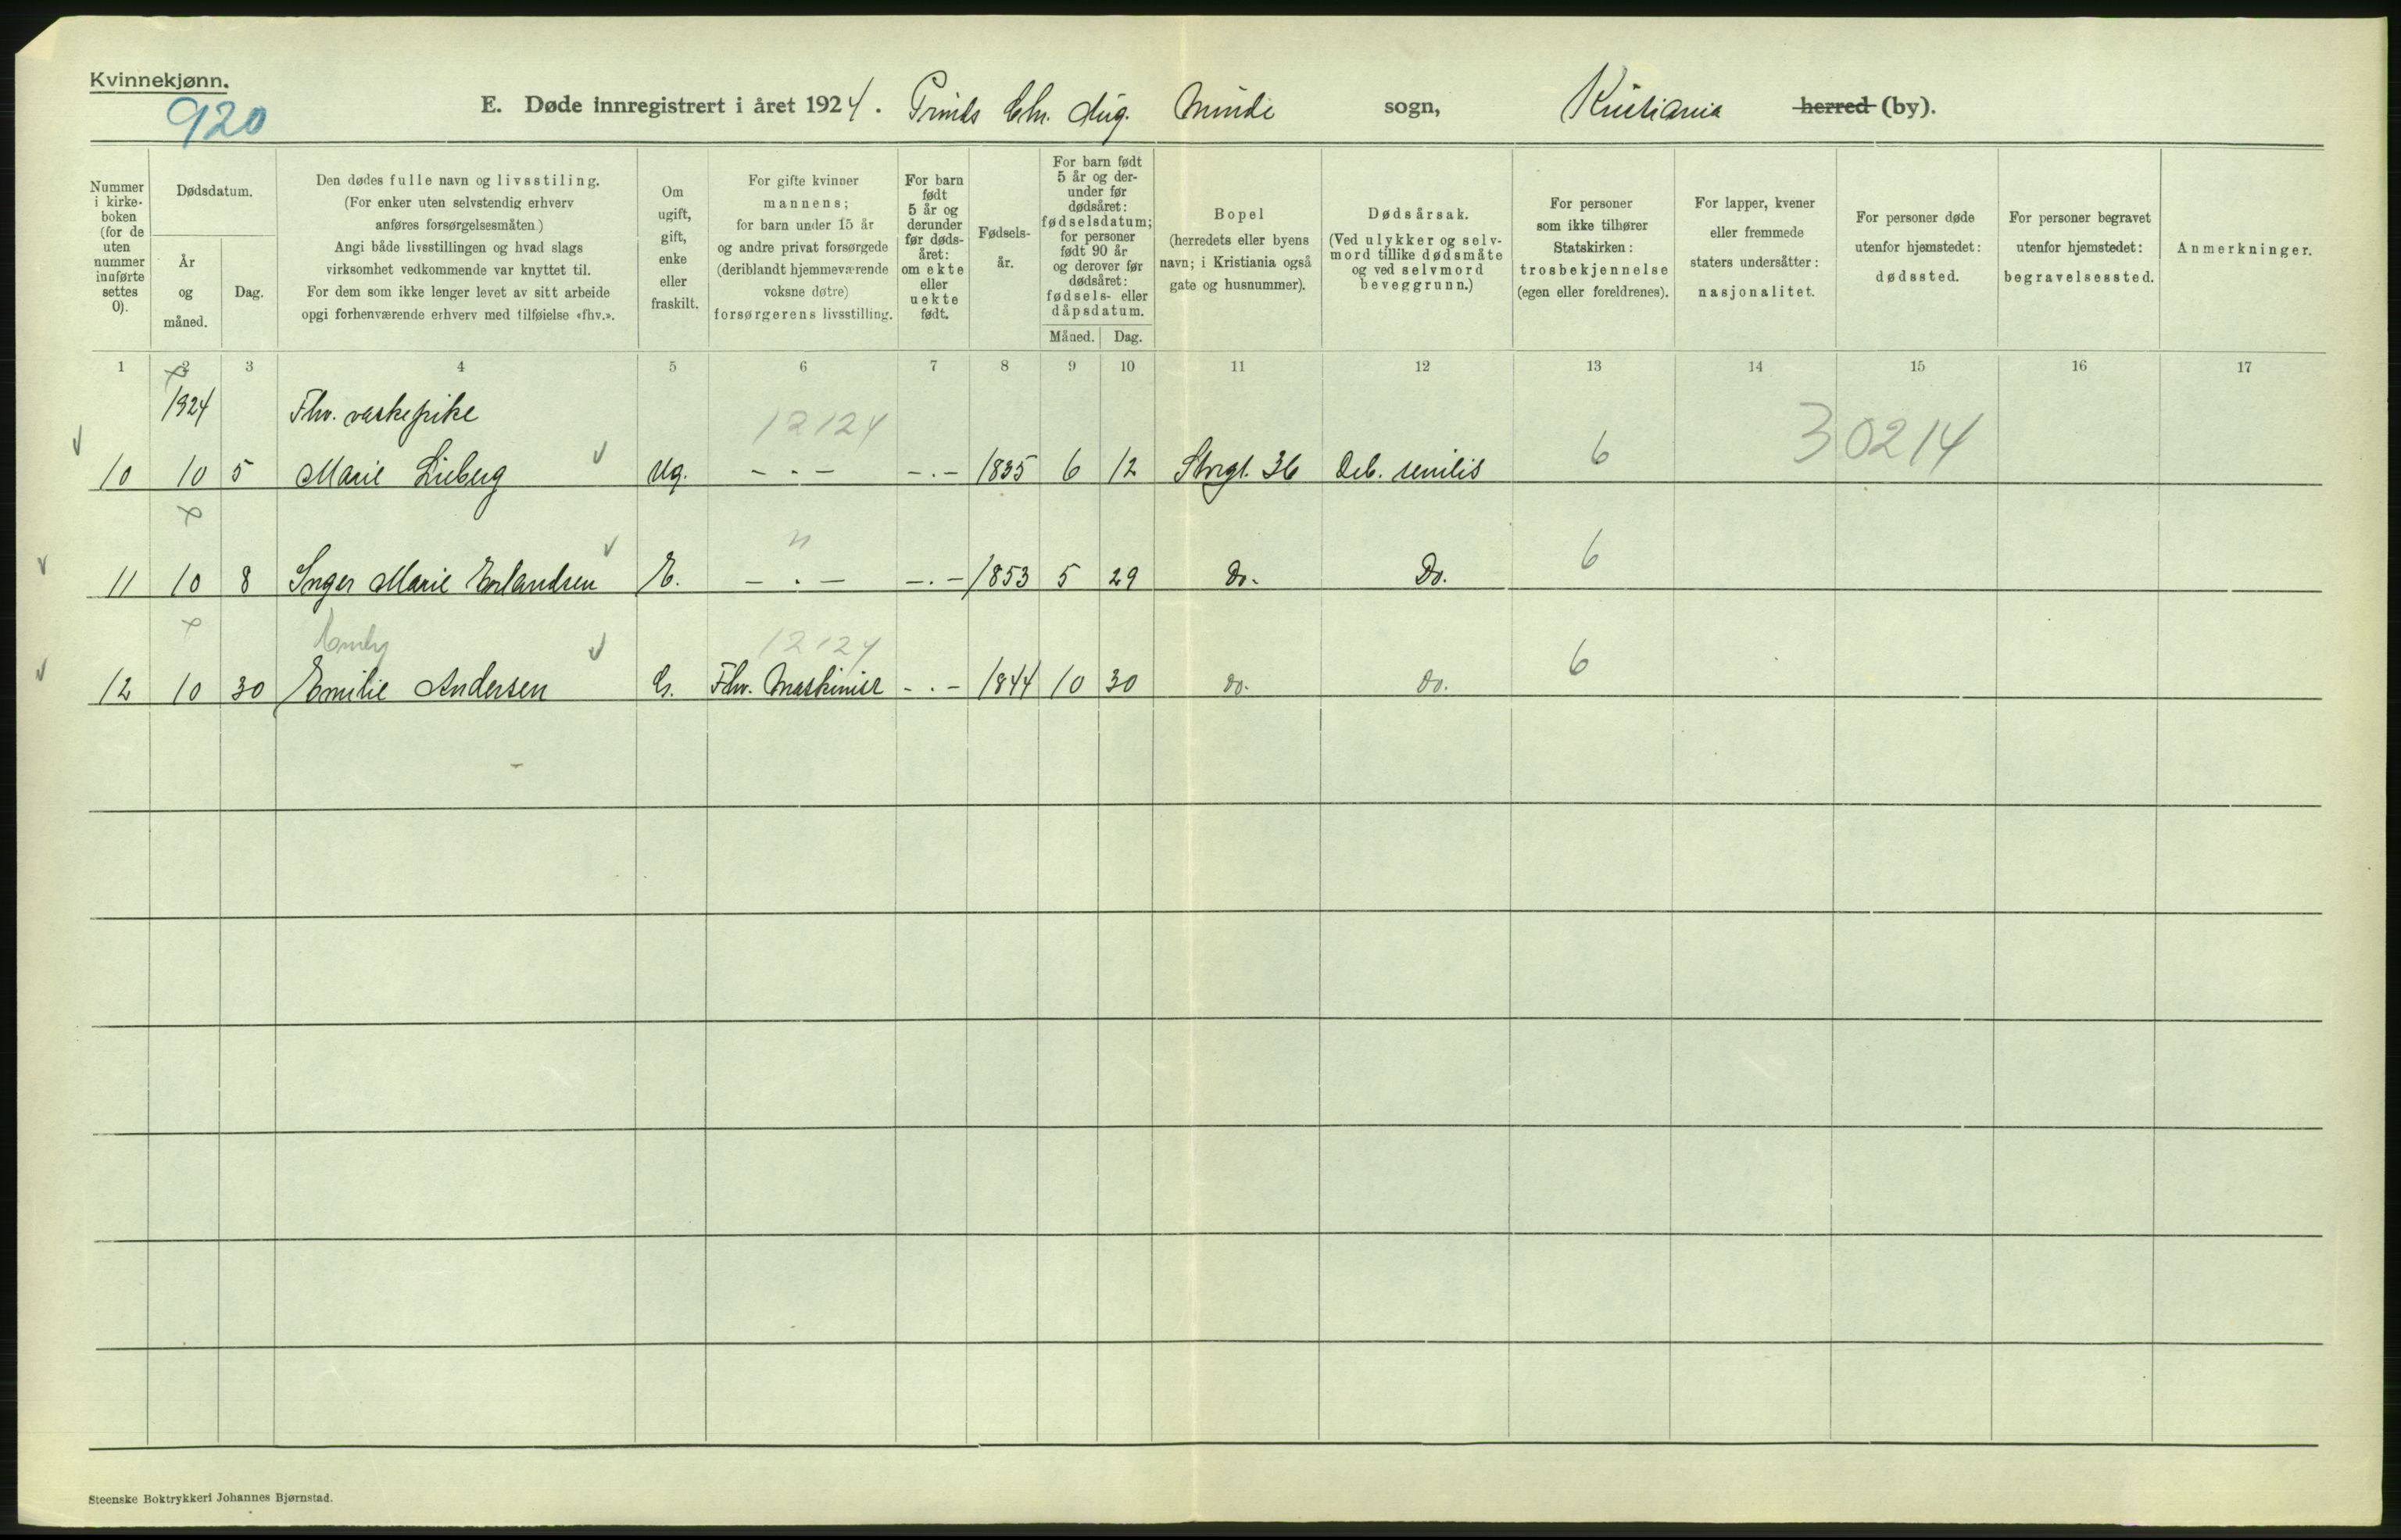 Kvinnekjønn.
920
E. Døde innregistrert i året 1924. Prinds Chr. Aug. Minde sogn, Kristiania herred (by).
Nummer i kirke-boken (for de uten nummer innførte settes 0).
Dødsdatum.
År og måned.
Dag.
Den dødes fulle navn og livsstiling.
(For enker uten selvstendig erhverv
anføres forsørgelsesmåten.)
Angi både livsstillingen og hvad slags
virksomhet vedkommende var knyttet til.
For dem som ikke lenger levet av sitt arbeide
opgi forhenværende erhverv med tilføielse «fhv.».
Om
ugift,
gift,
enke
eller
fraskilt.
For gifte kvinner
mannens;
for barn under 15 år
og andre privat forsørgede
(deriblandt hjemmeværende
voksne døtre)
forsørgerens livsstilling.
For barn
født
5 år og
derunder
før døds-
året:
om ekte
eller
uekte
født.
Fødsels-
år.
For barn født
5 år og der-
under før
dødsåret:
fødselsdatum;
for personer
født 90 år
og derover før
dødsåret:
fødsels- eller
dåpsdatum.
Måned. Dag.
Bopel
(herredets eller byens
navn; i Kristiania også
gate og husnummer).
Dødsårsak.
(Ved ulykker og selv-
mord tillike dødsmåte
og ved selvmord
beveggrunn.)
For personer
som ikke tilhører
Statskirken:
trosbekjennelse
(egen eller foreldrenes).
For lapper, kvener
eller fremmede
staters undersåtter:
nasjonalitet.
For personer døde
utenfor hjemstedet:
dødssted.
For personer begravet
utenfor hjemstedet:
begravelsessted.
Anmerkninger.
1 2 3 4 5 6 7 8 9 10 11 12 13 14 15 16 17
1924 Fhv. vaskepike 12124 30214
10 10 5 Marie Lieberg Ug. – . – – . – 1835 6 12 Strgt. 36 Deb. senilis 6
11 10 8 Inger Marie Erlandsen E. – . – – . – 1853 5 29 Do. Do. 6
Emly 12124
12 10 30 Emilie Andersen G. Fhv. Maskinist – . – 1844 10 30 do. do. 6
Steenske Boktrykkeri Johannes Bjørnstad.